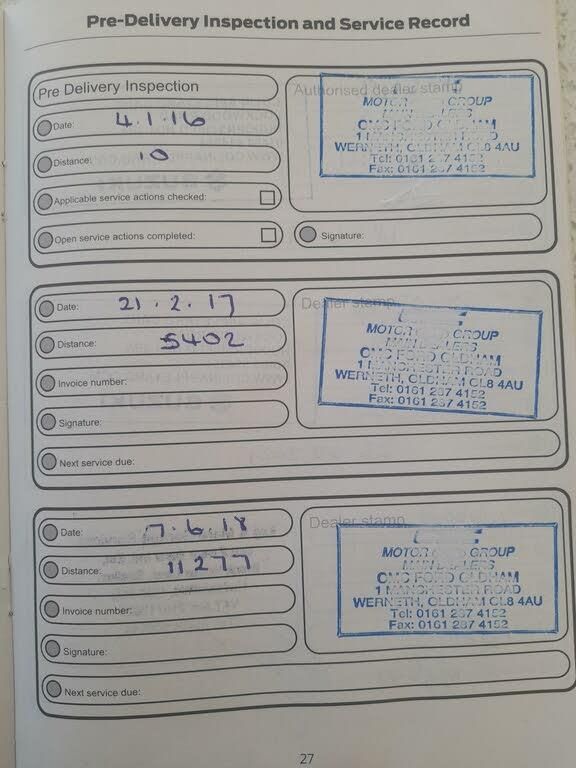 Pre-Delivery Inspection and Service Record
Pre Delivery Inspection
Date: 4.1.16
Distance: 10
Applicable service actions checked:
Open service actions completed:
Authorised dealer stamp
MOTOR GROUP
MAIN DEALERS
OMC FORD OLDHAM
1 MANCHESTER ROAD
WERNETH, OLDHAM OL8 4AU
Tel: 0161 287 4152
Fax: 0161 287 4152
Signature:
Date: 21.2.17
Distance: 5402
Invoice number:
Signature:
Next service due:
Dealer stamp
MOTOR GROUP
MAIN DEALERS
OMC FORD OLDHAM
1 MANCHESTER ROAD
WERNETH, OLDHAM OL8 4AU
Tel: 0161 287 4152
Fax: 0161 287 4152
Date: 7.6.18
Distance: 11277
Invoice number:
Signature:
Next service due:
Dealer stamp
MOTOR GROUP
MAIN DEALERS
OMC FORD OLDHAM
1 MANCHESTER ROAD
WERNETH, OLDHAM OL8 4AU
Tel: 0161 287 4152
Fax: 0161 287 4152
27